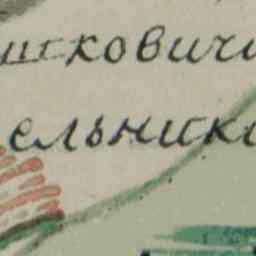 шковичи
ельники